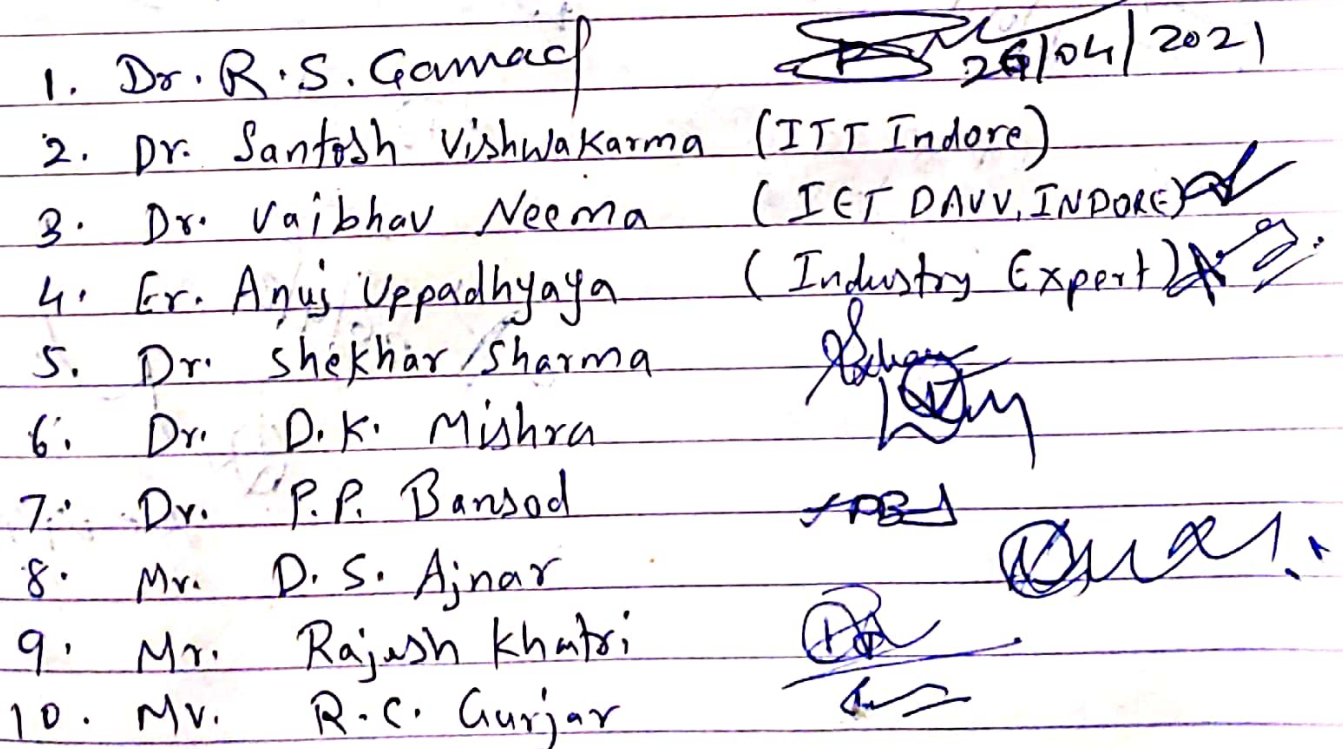 1. Dr. R.S. Gamad 26/04/2021
2. Dr. Santosh Vishwakarma (IIT Indore)
3. Dr. Vaibhav Neema (IET DAVV, INDORE)
4. Er. Anuj Uppadhyaya (Industry Expert)
5. Dr. Shekhar Sharma
6. Dr. D.K. Mishra
7. Dr. P.P. Bansod
8. Mr. D.S. Ajnar
9. Mr. Rajesh Khatri
10. Mr. R.C. Gurjar